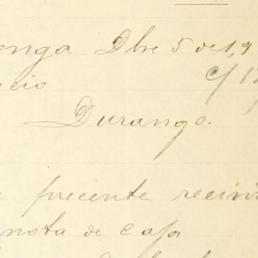 onga Dbre 5 de 19
cio c/
Durango.
e precente recivi
nota de Casa